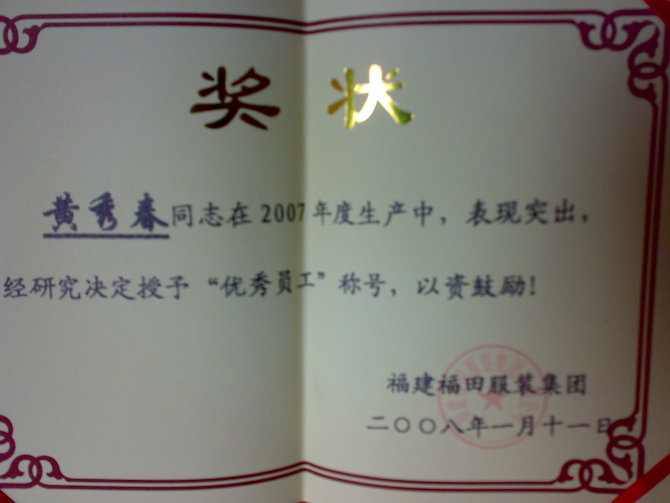 奖 状
黄秀春同志在2007年度生产中，表现突出，
经研究决定授予“优秀员工”称号，以资鼓励！
福建福田服装集团
二〇〇八年一月十一日